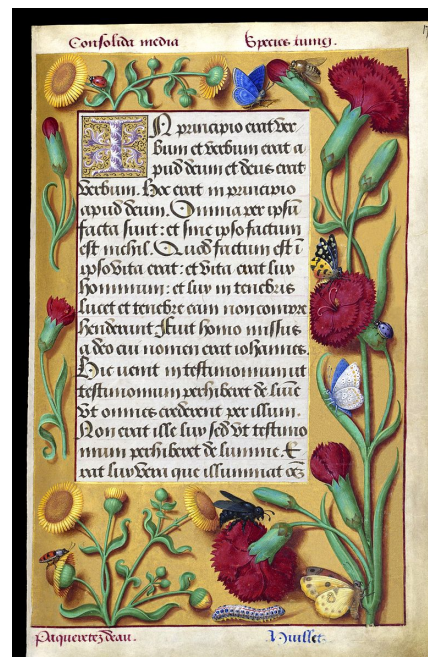 Consolida media
Species tunig.
IN principio erat ver
bum et verbum erat a
pud deum et deus erat
verbum. Hoc erat in principio
apud deum. Omnia per ipsū
facta sunt: et sine ipso factum
est nichil. Quod factum est ī
ipso vita erat: et vita erat lux
hominum: et lux in tenebris
lucet et tenebre eam non compre
henderunt Fuit homo missus
a deo cui nomen erat iohannes.
Hic venit in testimonium ut
testimonium perhiberet de lumē
Vt omnes crederent per illum.
Non erat ille lux sed vt testimo
nium perhiberet de lumine. E
rat lux vera que illuminat oēz
Paqueretez deau.
Yuillet.